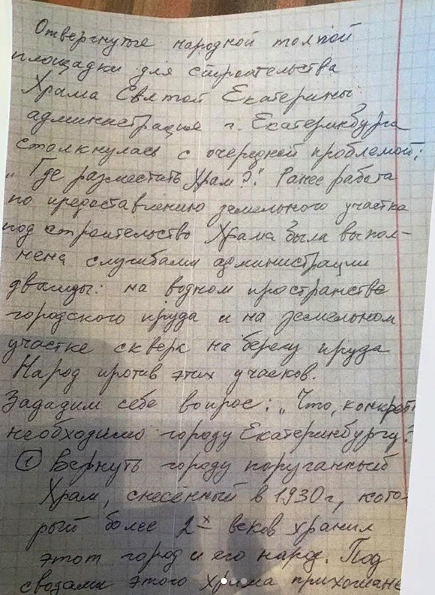 Отвергнутые народной толпой
площадки для строительства
Храма Святой Екатерины
администрация г. Екатеринбурга
столкнулась с очередной проблемой:
"Где разместить Храм?". Ранее работа
по предоставлению земельного участка
под строительство Храма была выпол-
нена службами администрации
дважды: на водном пространстве
городского пруда и на земельном
участке сквера на берегу пруда
Народ против этих участков.
Зададим себе вопрос: "Что, конкретно
необходимо городу Екатеринбургу?
① Вернуть городу поруганный
Храм, снесённый в 1930г, кото-
рый более 2х веков хранил
этот город и его народ. Под
сводами этого Храма прихожане